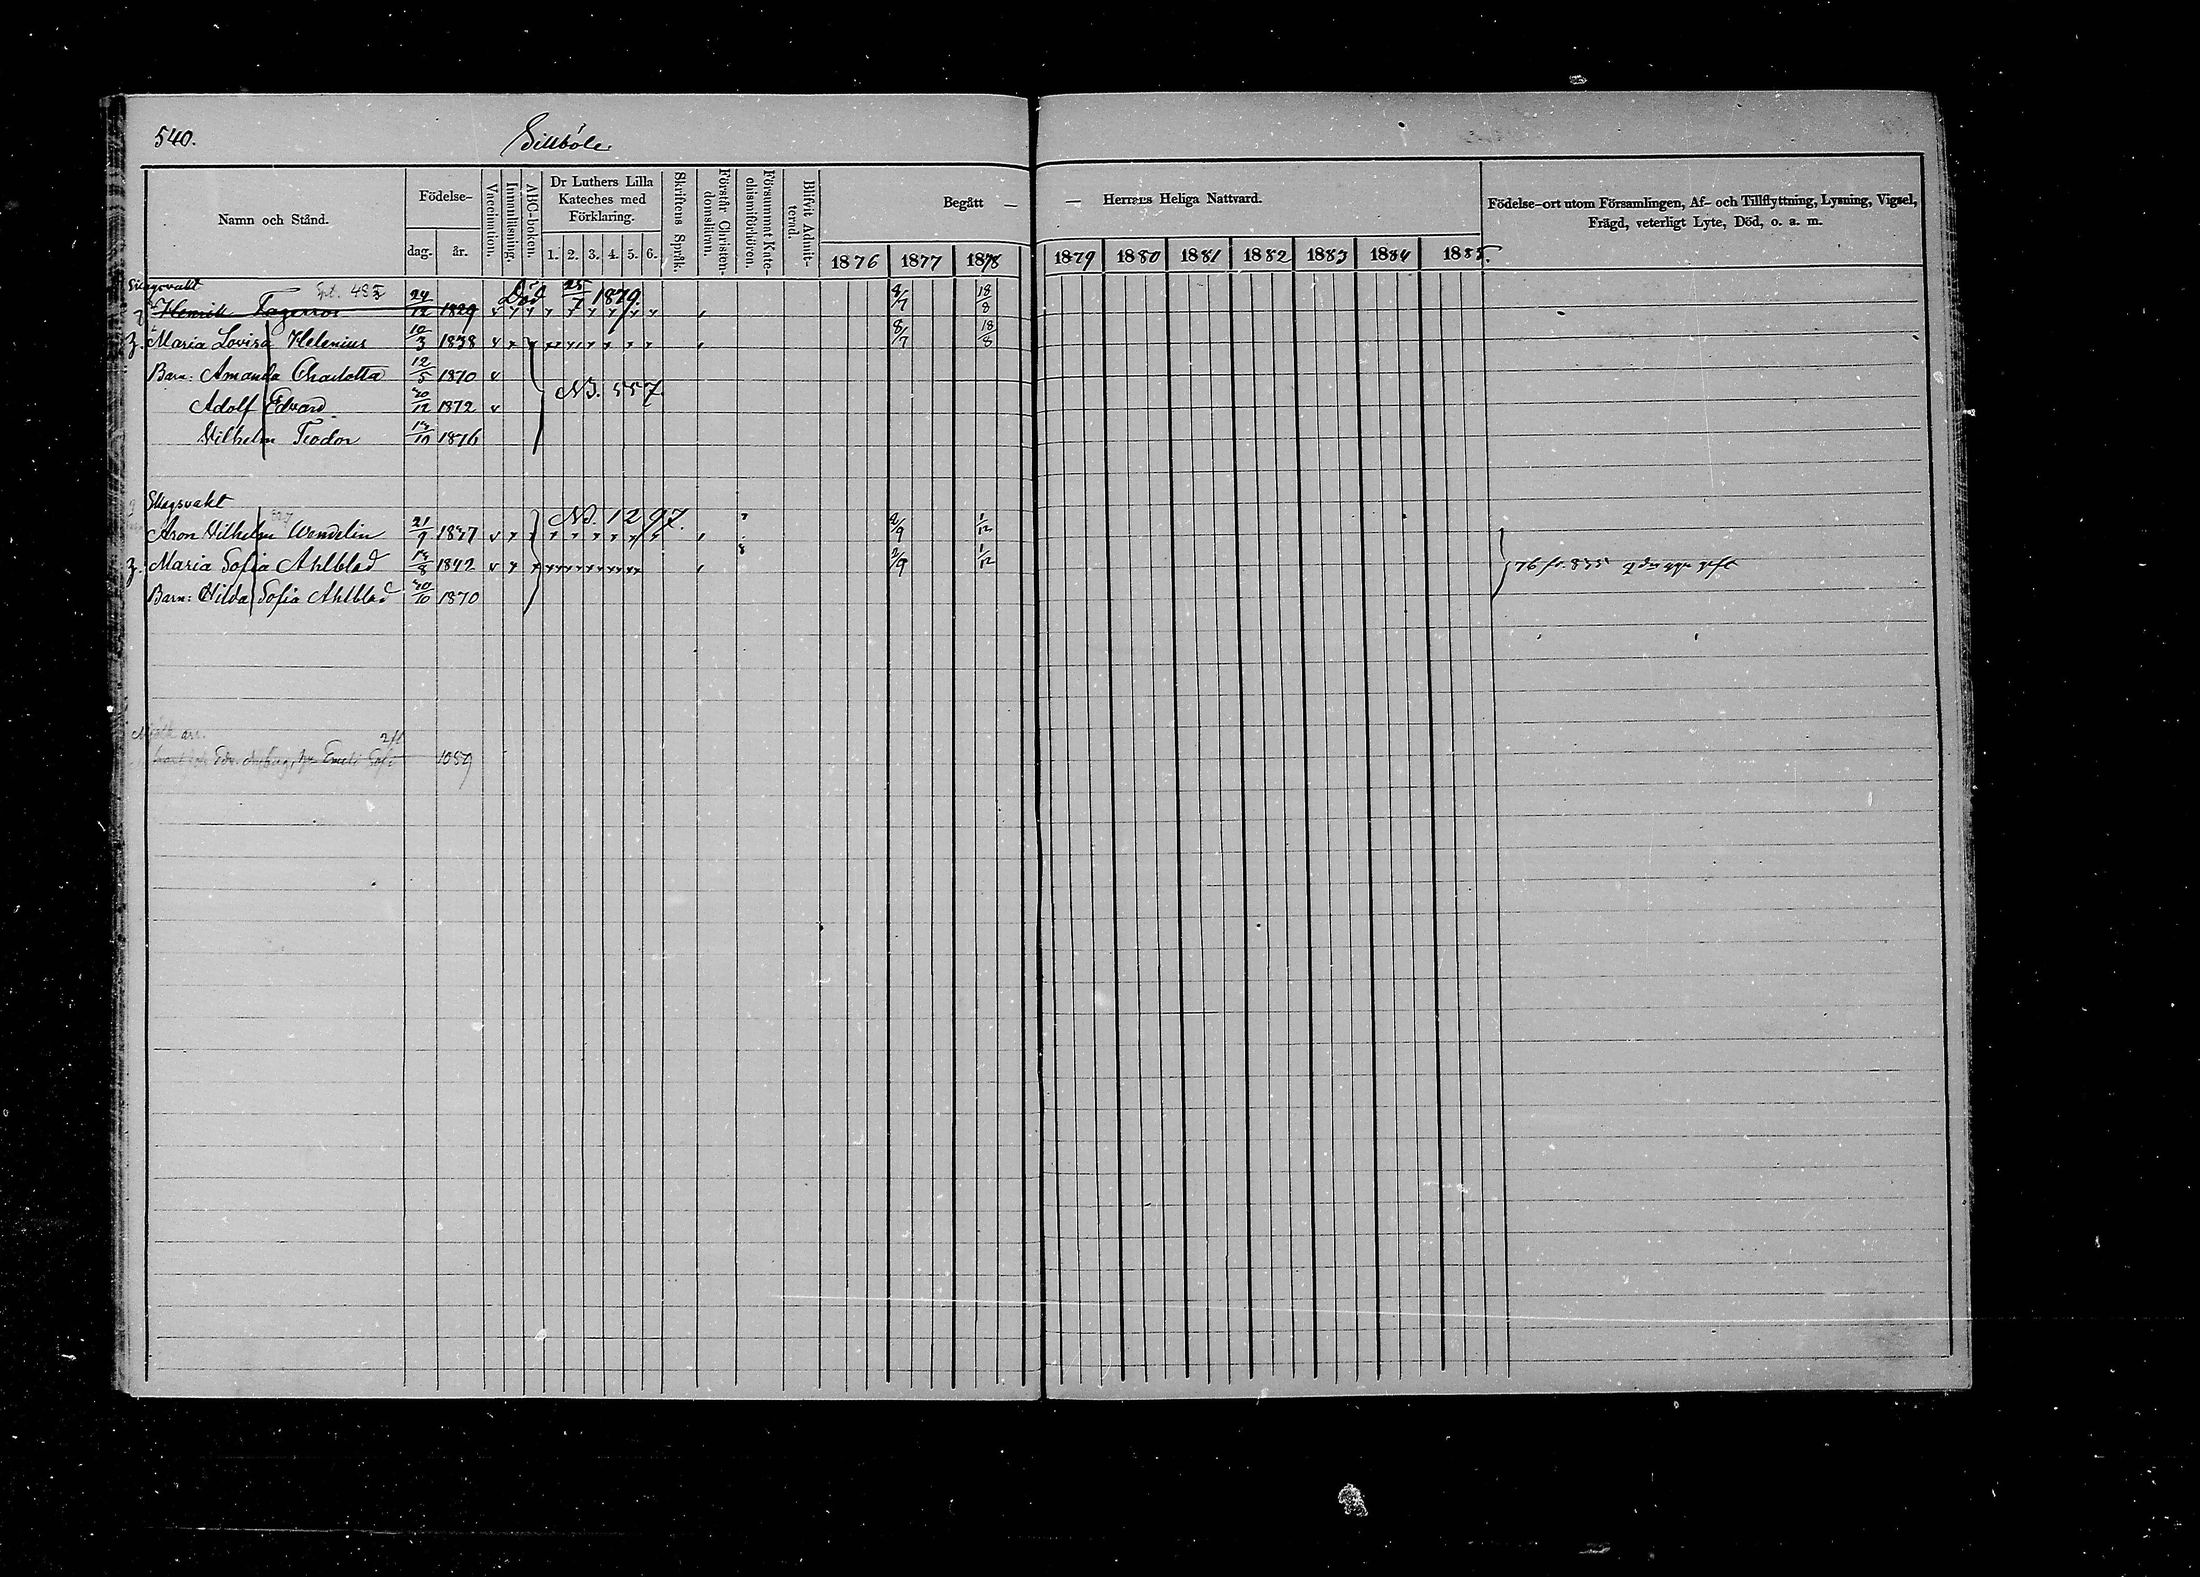 540.
Sillböle
Namn och Stånd.
Födelse-
dag.
år.
Vaccination.
Innanläsning.
ABC-boken.
Dr Luthers Lilla Kateches med Förklaring.
1. 2. 3. 4. 5. 6.
Skriftens Språk.
Förstår Christendomsläran.
Försummat Katechismiförhören.
Blifvit Admitterad.
Begått —
— Herrens Heliga Nattvard.
1876 1877 1878 1879 1880 1881 1882 1883 1884 1885.
Födelse-ort utom Församlingen, Af- och Tillflyttning, Lysning, Vigsel,
Frägd, veterligt Lyte, Död, o. a. m.
Henrik Fagerros 24/12 1829 Död 25/7 1879 8/7 18/8
Maria Lovisa Helenius 10/3 1838 8/7 18/8
Barn: Amanda Charlotta 12/5 1870
N3. 557.
Adolf Edvard 30/12 1872
Vilhelm Teodor 13/10 1876
Skogsvakt
Aron Vilhelm Wendelin 21/9 1837 N3. 1297. 2/9 1/12
Maria Sofia Ahlblad 13/8 1842 2/9 1/12 76 fr. 835
Barn: Hilda Sofia Ahlblad 30/10 1870
1059